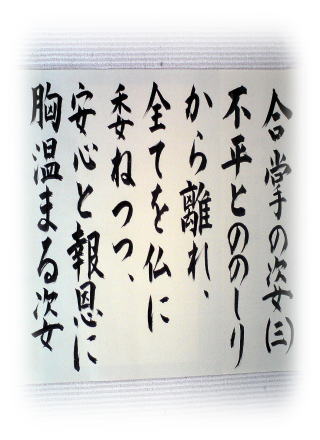 合掌の姿(三)
不平とののしり
から離れ、
全てを仏に
委ねつつ、
安心と報恩に
胸温まる姿